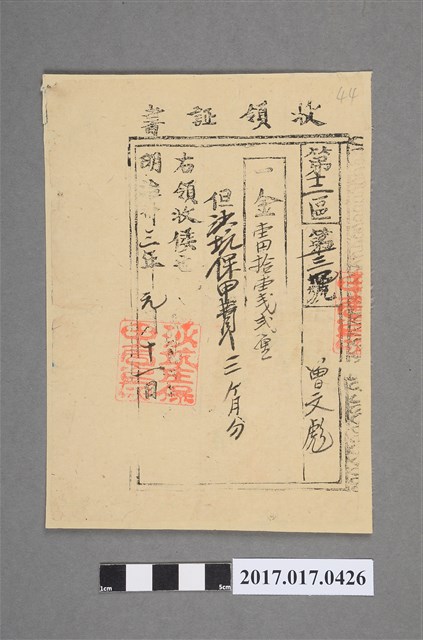 44
收領証書
第十一區 第三號 曾文彪
一金壹円拾壹戔貳厘
但法坑保甲費三ヶ月分
右領收候也
明治卅三年元月十一日
1cm 5cm
2017.017.0426